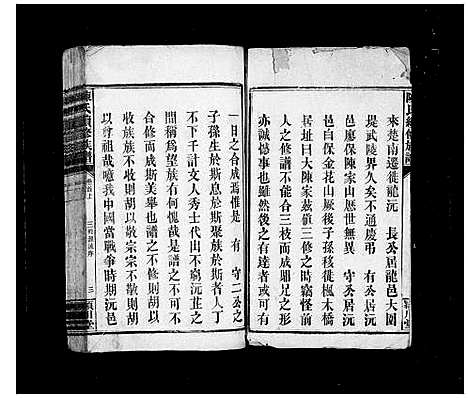 陳氏續修族譜
來楚南遷徙龍沅 長公居龍邑大圍
堤武陵界久矣不通慶弔 有公居沅
邑廖保陳家山歷世無異 守公居沅
邑自保金花山厥後子孫移徙楓木橋
居址曰大陳家茲値三修之時竊怪前
人之修譜不能合三枝而成顒兄之形
亦誠憾事也雖然後之有達者或可有
一日之合成焉惟是 有 守二公之
子孫生於斯息於斯聚族於斯者人丁
不下千計文人秀士代出不窮沅芷之
間稱爲望族有何愧哉是譜之不一不
合修而成斯美舉也譜之不修則胡以
收族族不收則胡以敬宗宗不敬則胡
以尊祖哉噫我中國當戰爭時期沅邑
陳氏續修族譜
卷首上
三
潁川堂